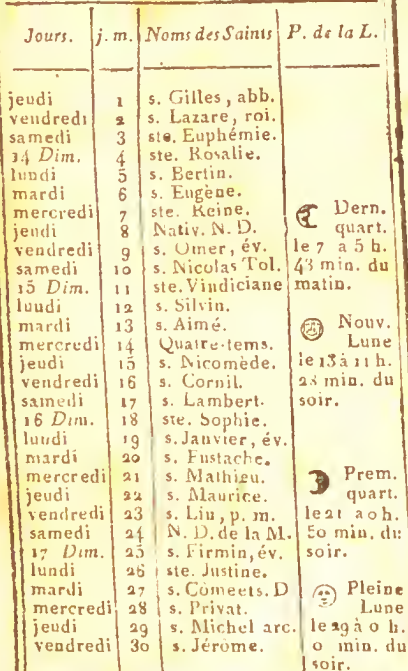 Jours. j. m. Noms des Saints P. de la L.
jeudi 1 s. Gilles, abb.
vendredi 2 s. Lazare, roi.
samedi 3 ste. Euphémie.
14 Dim. 4 ste. Rosalie.
lundi 5 s. Bertin.
mardi 6 s. Eugène.
mercredi 7 ste. Reine. Dern.
jeudi 8 Nativ. N. D. quart.
vendredi 9 s. Omer, év. le 7 a 5 h.
samedi 10 s. Nicolas Tol. 43 min. du
15 Dim. 11 ste. Vindiciane matin.
lundi 12 s. Silvin.
mardi 13 s. Aimé. Nouv.
mercredi 14 Quatre-tems. Lune
jeudi 15 s. Nicomède. le 13 à 11 h.
vendredi 16 s. Cornil. min. du
samedi 17 s. Lambert. soir.
16 Dim. 18 ste. Sophie.
lundi 19 s. Janvier, év.
mardi 20 s. Eustache.
mercredi 21 s. Mathieu. Prem.
jeudi 22 s. Maurice. quart.
vendredi 23 s. Lin, p. m. le 21 a 0 h.
samedi 24 N. D. de la M. 50 min. du
17 Dim. 25 s. Firmin, év. soir.
lundi 26 ste. Justine.
mardi 27 s. Comeets. D Pleine
mercredi 28 s. Privat. Lune
jeudi 29 s. Michel arc. le 29 à 0 h.
vendredi 30 s. Jérôme. 0 min. du
soir.